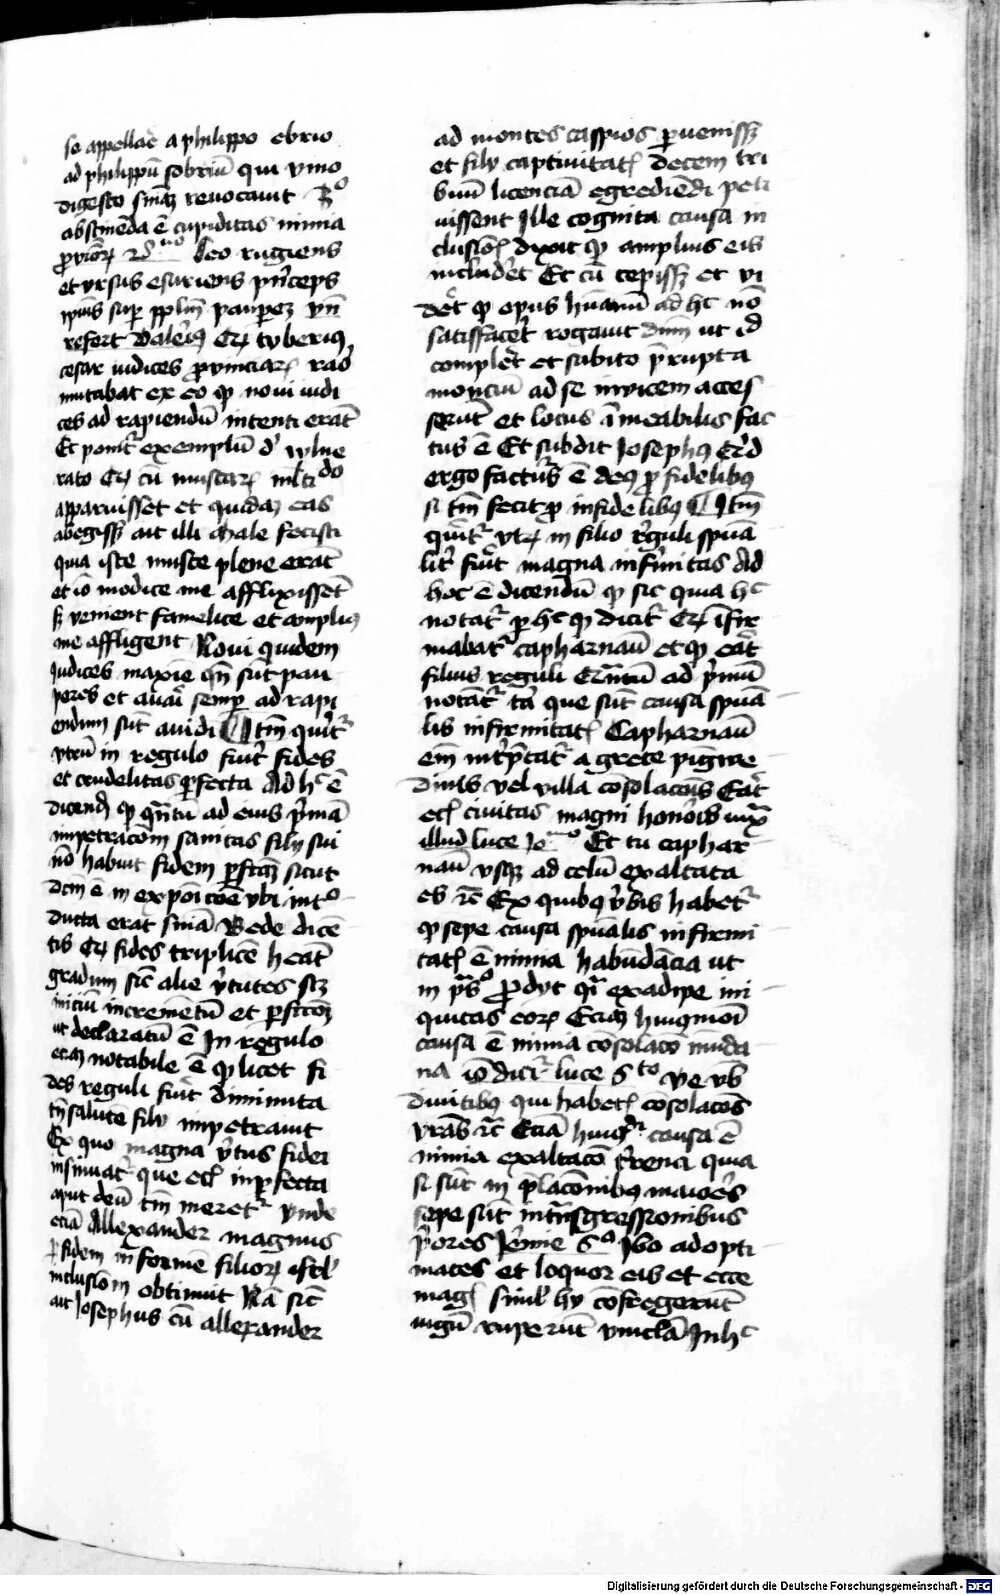 se appellare a philippo ebrio
ad philippū sobriū qui vino
digesto sniaz reuocauit
abstinēda ē cupiditas nimia
Leo rugiens
et vrsus esuriens pn̄ceps
ipius sup pplm̄ paupez vn̄
refert Valeriꝰ tyberiꝰ
cesar iudices prouinciarꝝ raro
mutabat ex eo qꝫ noui iudi
ces ad rapiendū intenti erāt
Et ponit exemplū d' vulne
rato cū muscarꝝ mltitudo
apparuisset et quidaz eas
abegissz ait illi Male fecisti
quia iste musce plene erāt
et iō modice me afflixissēt
sz venient famelice et ampliꝰ
me affligent Noui quidem
Judices maxīe qn̄ sūt pau
peres et auari semp ad rapi
endum sūt auidi Itm̄ querit
vtrū in regulo fuit fides
et crudelitas perfecta Ad hc ē
dicend qꝫ quātū ad eius pmā
impetracōm sanitas filij sui
nō habuit fidem pfectaz sicut
dcm̄ ē in exposicōe vbi intro
ducta erat snīa Bede dicē
tis fides triplicē heat
gradum sic alie vtutes scz
iniciū incremētū et pfectōz
ut declaratū ē In regulo
eciaz notabile ē qꝫ licet fi
des reguli fuit diminuta
tn̄ salutē filij impetrauit
Ex quo magna vtus fidei
insinuat que eciā imperfecta
aput deū tm̄ meret Vnde
eciā Allexander magnus
per fidem informē filiorꝝ israel
inclusiōm obtinuit Nā sic
ait Josephus cū allexander
ad montes caspios puenissz
et filij captiuitatꝭ decem tri
buū licenciā egrediēdi peti
uissent Ille cognita causa in
clusiōis dixit qꝫ amplius eis
includet Et cū cepissz et vi
det qꝫ opus humanū ad hc nō
satisfacet rogauit dnm̄ ut id
complet et subito prupta
monciū ad se inuicem acces
serūt et locus īmeabilis fac
tus ē Et subdit Josephꝰ Qd
ergo facturꝰ ē deꝰ p fidelibꝰ
si tm̄ fecit pro infidelibꝰ Itm̄
querit in filio reguli spuā
liter fuit magna infirmitas Ad
hoc ē dicendū qꝫ sic quia hc
notat p hc qꝫ dicit īfir
mabat capharnaū et qꝫ erat
filius reguli Quātū ad pmū
notant tria que sūt causa spuā
lis infirmitatꝭ Capharnaū
em̄ intptat a grece pigwe
dinis vel villa cōsolacōis Erat
eciā ciuitas magni honoris iuxta
illud luce Et tu caphar
naū vsqꝫ ad celū exaltata
es Ex quibꝰ vbis habet
qꝫ sepe causa spualis infirmi
tatꝭ ē nimia habūdācia ut
in ps Prodijt quasi ex adipe ini
quitas eorꝝ Eciaz huiusmodi
causa ē nimia cōsolaco mūda
na iō dicit luce 6to Ve vob
diuitibꝰ qui habetꝭ cōsolacōs
vras Eciā huiꝰ causa ē
nimia exaltaco terrena quia
si sūt in placōnibꝰ maiores
sepe sūt in transgressionibus
priores Jeremie 5o Ibo ad opti
mates et loquor eis et ecce
magis simul hij cōfregerūt
iugū ruperūt vincla In hc